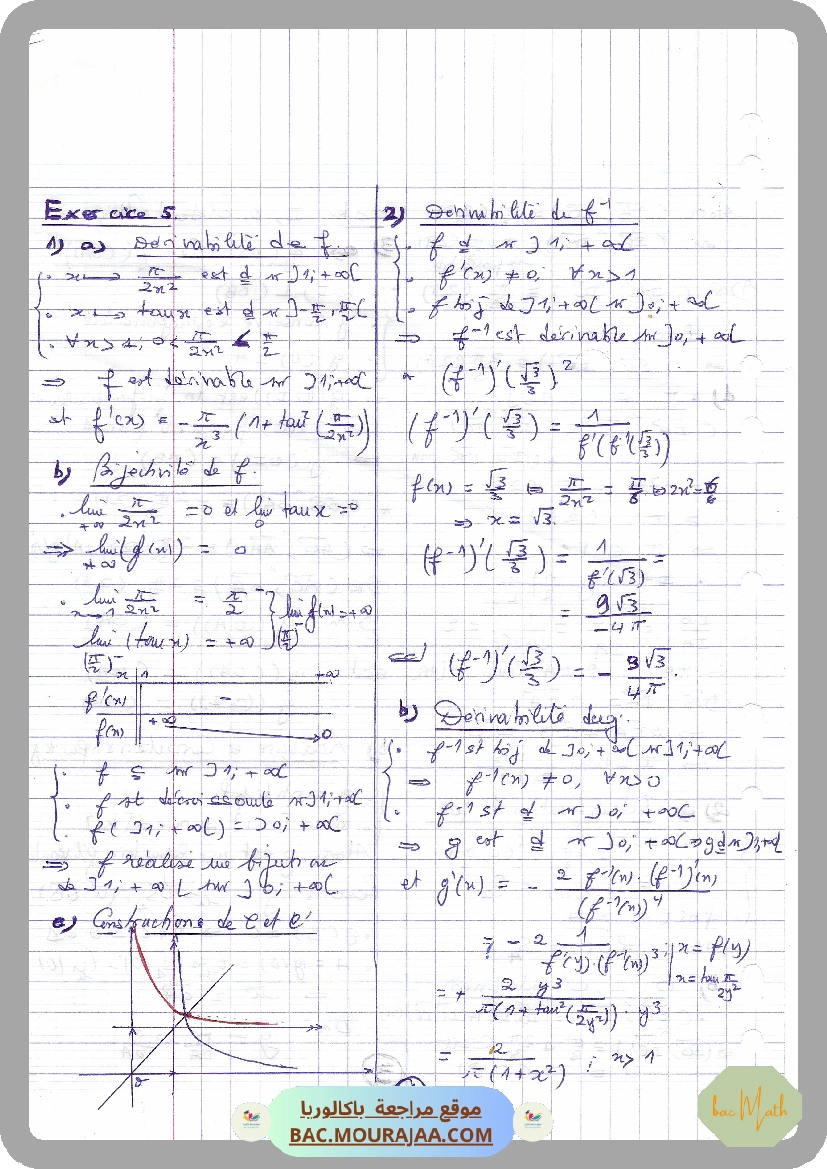 Exercice 5
1) a) Dérivabilité de f.
. x ↦ π/2x² est d sur ]1; +∞[
. x ↦ tan x est d sur ]-π/2, π/2[
. ∀x > 1; 0 < π/2x² < π/2
⇒ f est dérivable sur ]1; +∞[
et f'(x) = - π/x³ (1 + tan² (π/2x²))
b) Bijectivité de f.
. lim +∞ π/2x² = 0 et lim 0 tan x = 0
⇒ lim +∞ (f(x)) = 0
. lim x→1 π/2x² = π/2⁻
lim (π/2)⁻ (tan x) = +∞ } lim f(x) = +∞
x | 1 +∞
f'(x) | -
f(x) | +∞ 0
. f c sur ]1; +∞[
. f est décroissante sur ]1; +∞[
. f(]1; +∞[) = ]0; +∞[
⇒ f réalise une bijection
de ]1; +∞[ sur ]0; +∞[
c) Constructions de C et C'
0
2) Dérivabilité de f⁻¹
. f d sur ]1; +∞[
. f'(x) ≠ 0; ∀x > 1
. f bij de ]1; +∞[ sur ]0; +∞[
⇒ f⁻¹ est dérivable sur ]0; +∞[
(f⁻¹)'(√3/3) ?
(f⁻¹)'(√3/3) = 1/f'(f⁻¹(√3/3))
f(x) = √3/3 ⇔ π/2x² = π/6 ⇔ 2x² = 6
⇒ x = √3.
(f⁻¹)'(√3/3) = 1/f'(√3) =
= 9√3/-4π
(f⁻¹)'(√3/3) = - 9√3/4π.
b) Dérivabilité de g.
. f⁻¹ est bij de ]0; +∞[ sur ]1; +∞[
⇒ f⁻¹(x) ≠ 0, ∀x > 0
. f⁻¹ est d sur ]0; +∞[
⇒ g est d sur ]0; +∞[
et g'(x) = - 2 f⁻¹(x) · (f⁻¹)'(x) / (f⁻¹(x))⁴
= - 2 1/f'(y)·(f⁻¹(x))³ ; x = f(y)
x = tan π/2y²
= + 2 y³ / π(1 + tan²(π/2y²)) · y³
= 2/π(1 + x²) ; x > 1
موقع مراجعة باكالوريا
BAC.MOURAJAA.COM
bac Math